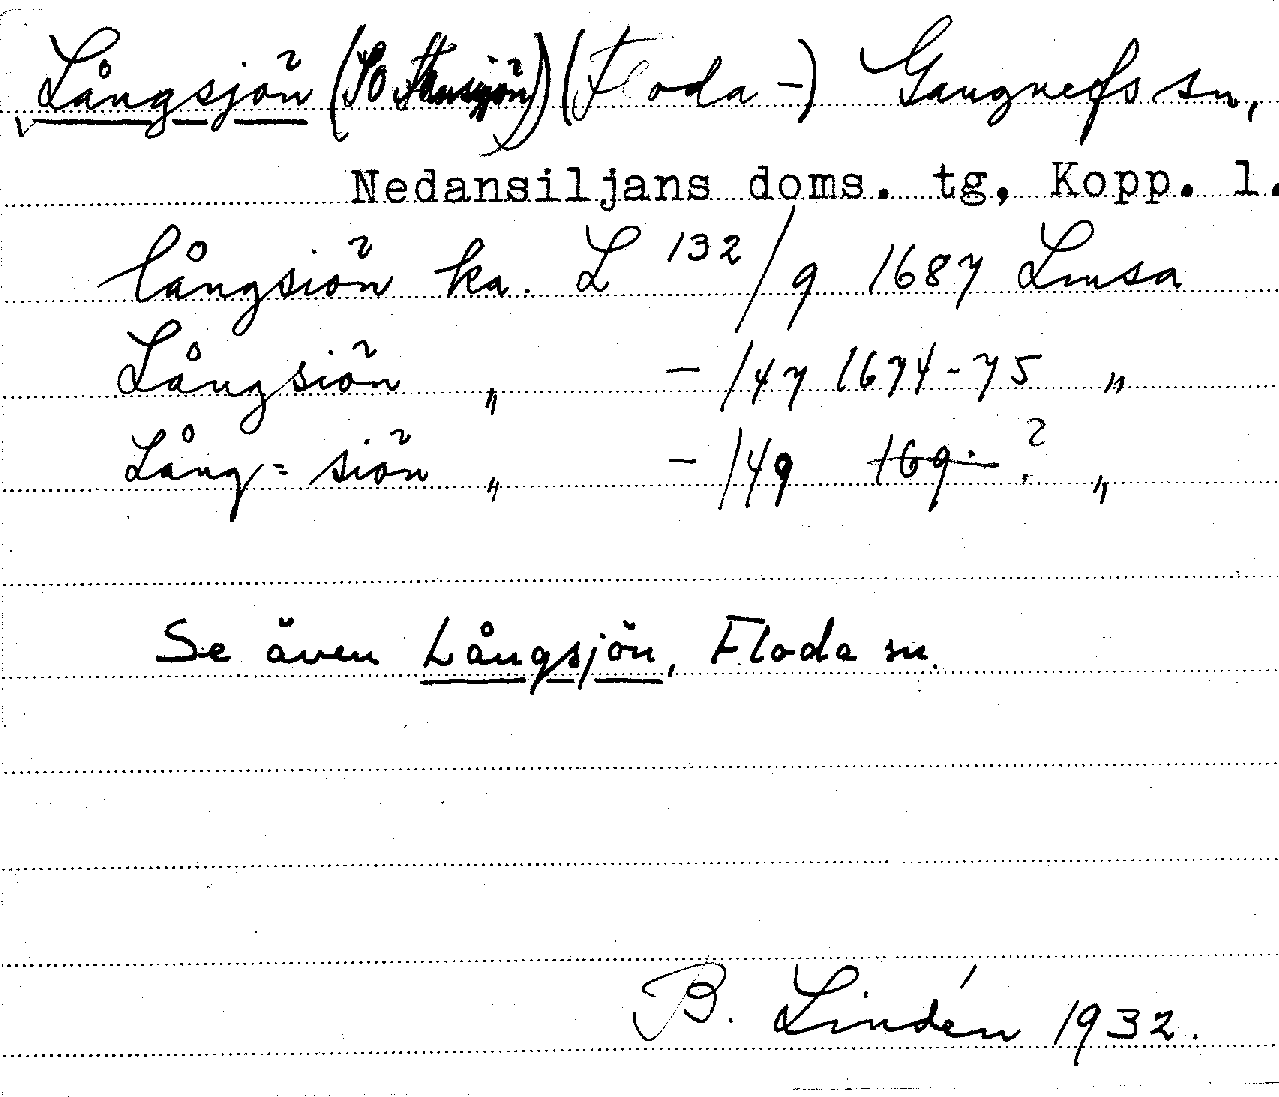 Långsjön (SO (Floda-) Gangnefs sn,
Nedansiljans doms. tg, Kopp. l.
långsiön ka. L 132/9 1687 Lmsa
Långsiön „ - /147 1674-75 „
Lång=siön „ - /149 169. ? „
Se även Långsjön, Floda sn.
B. Lindén 1932.